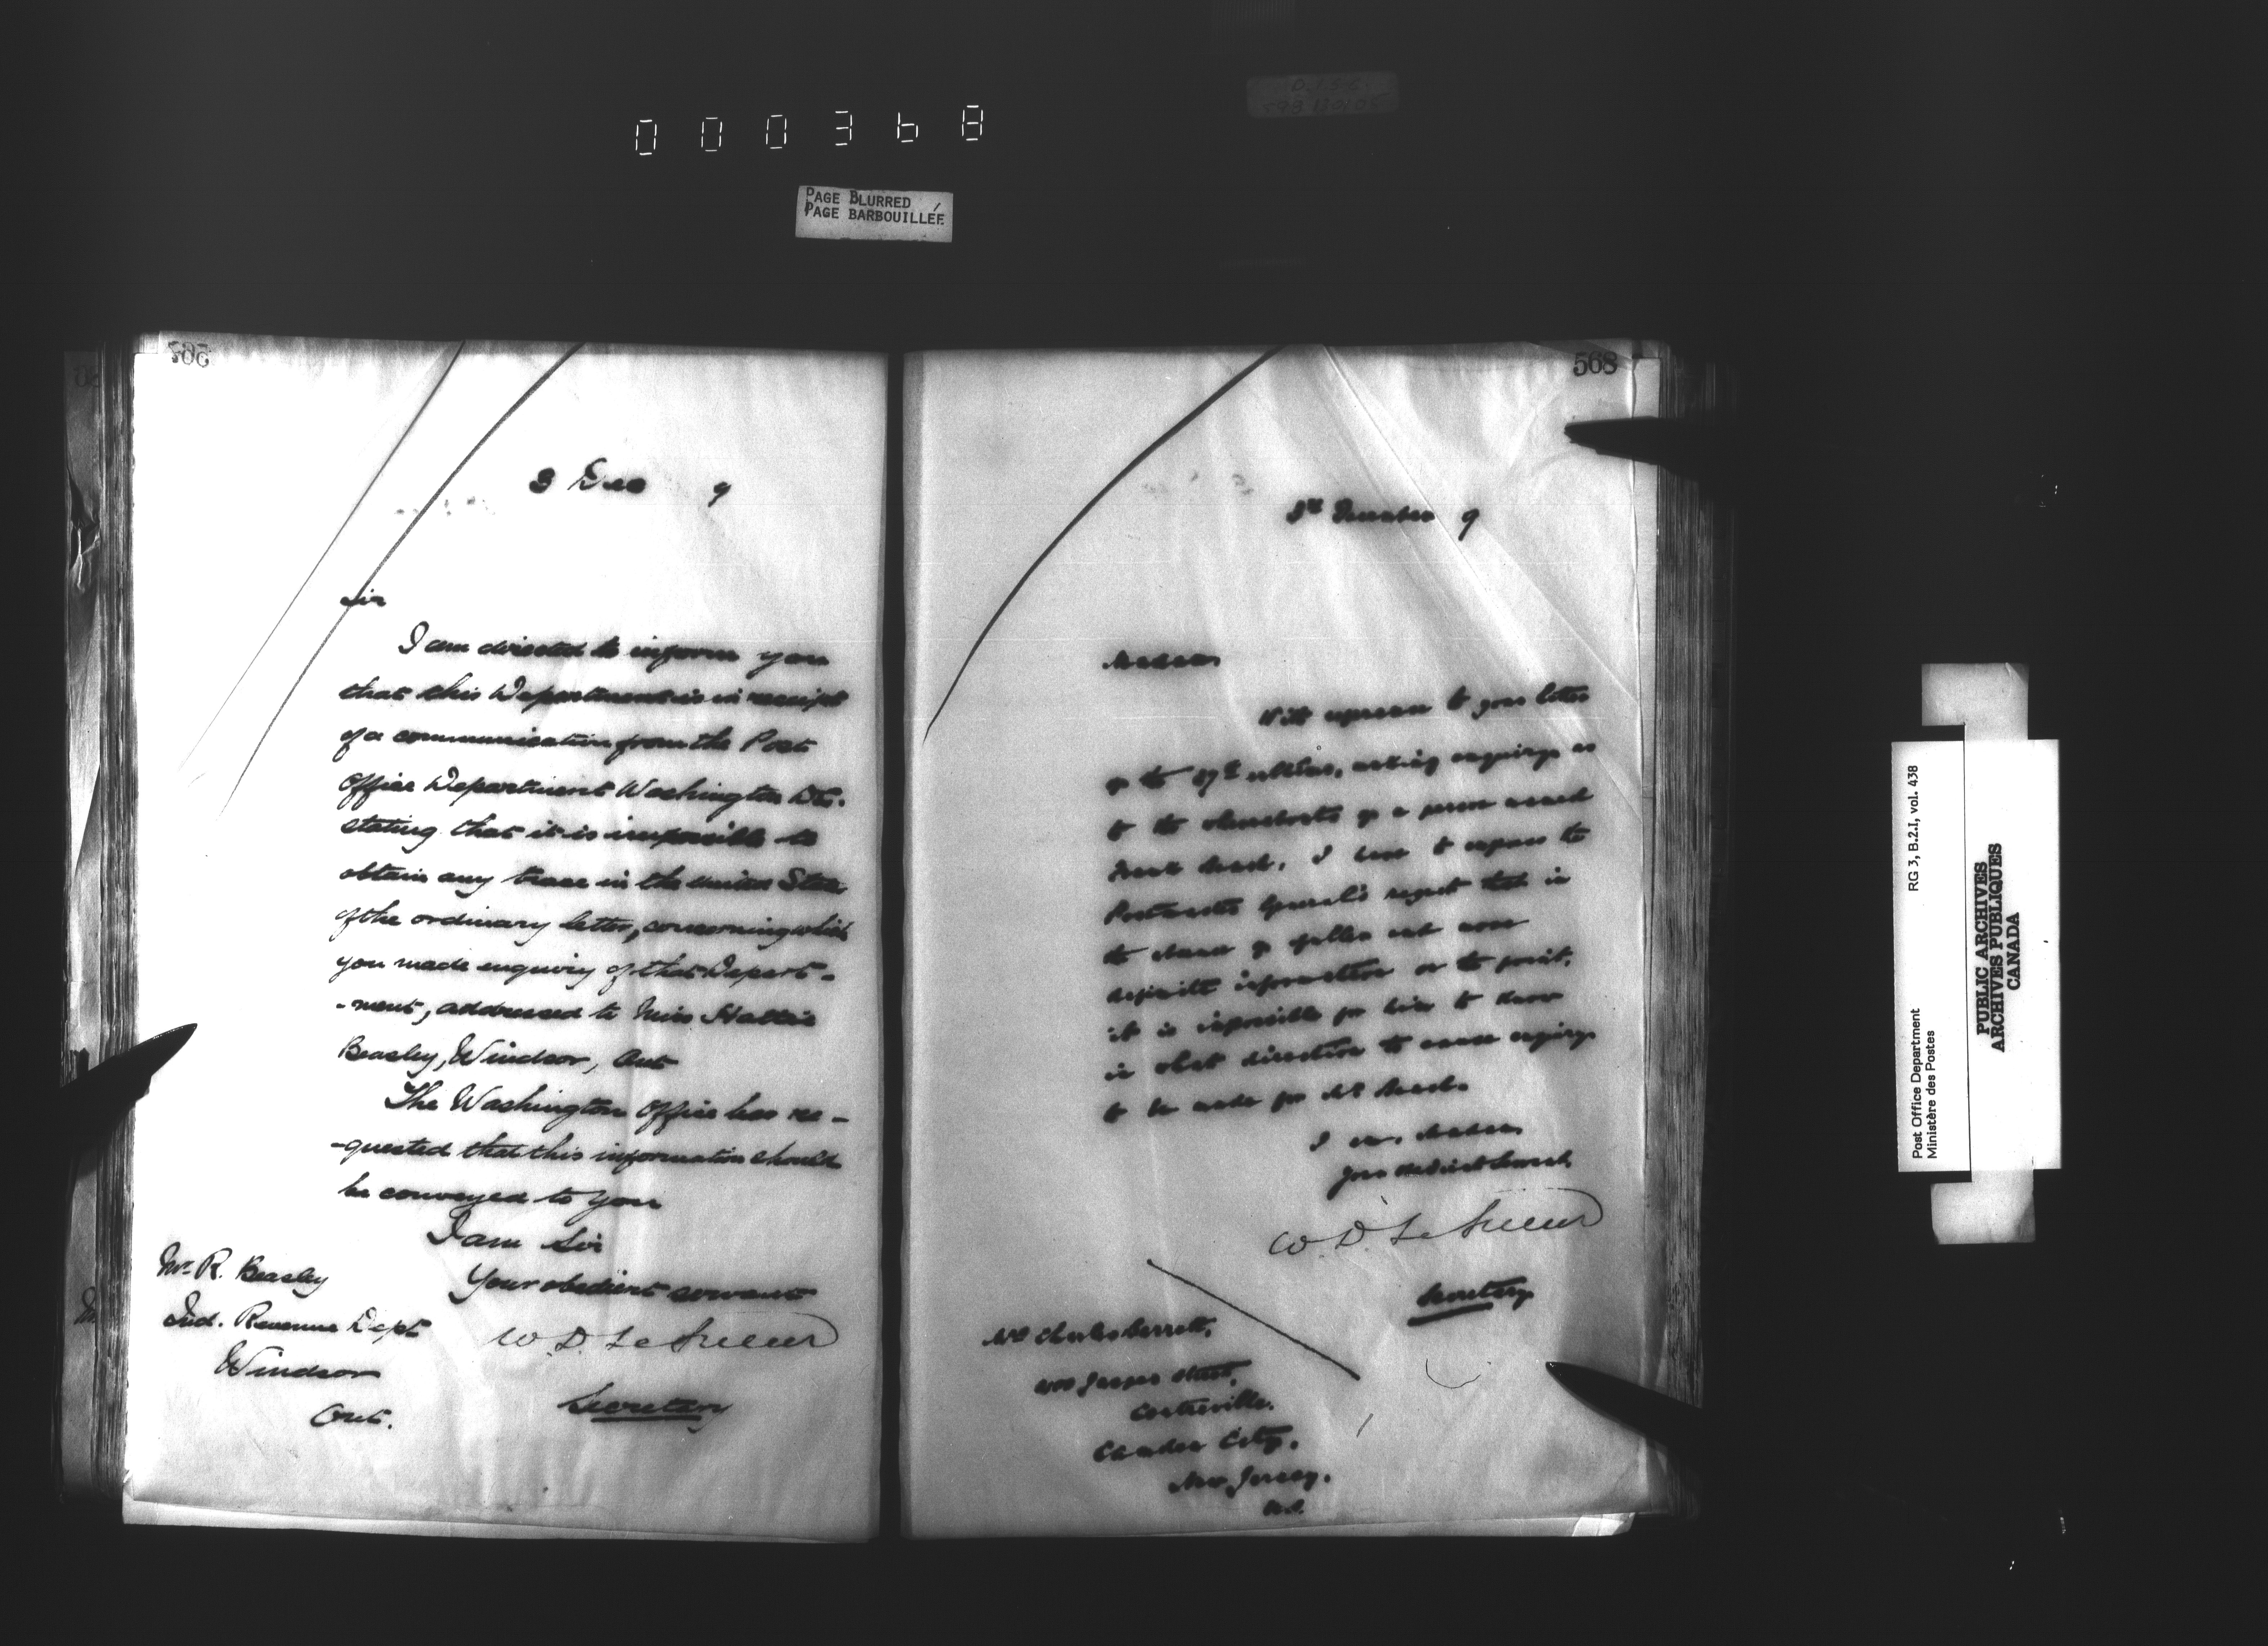 000368
PAGE BLURRED
PAGE BARBOUILLÉE
567
3 Dec 9
Sir
I am directed to inform you
that this Department is in receipt
of a communication from the Post
Office Department Washington
stating that it is impossible to
obtain any trace in the United States
of the ordinary letter, concerning which
you made enquiry of that Depart-
-ment, addressed to Miss Hattie
Beasley, Windsor, Ont
The Washington Office has re-
-quested that this information should
be conveyed to you
I am Sir
Your obedient servant
W. D. LeSueur
Secretary
Mr. R. Beasley
Ind. Revenue Dept
Windsor
Ont.
568
3rd December 9
Madam
With reference to your letter
of the 27th ultimo, making enquiry as
to the whereabouts of a person named
I have to express the
Postmaster General's regret that in
the absence of fuller and more
definite information on the point,
it is impossible for him to know
in what direction to cause enquiry
to be made for Mr
I am, Madam
Your obedient servant,
W. D. LeSueur
Secretary
Mrs Charles Barrett,
Street,
Centreville.
Camden City,
New Jersey.
U.S.
Post Office Department
Ministère des Postes
RG 3, B.2.I, vol. 438
PUBLIC ARCHIVES
ARCHIVES PUBLIQUES
CANADA